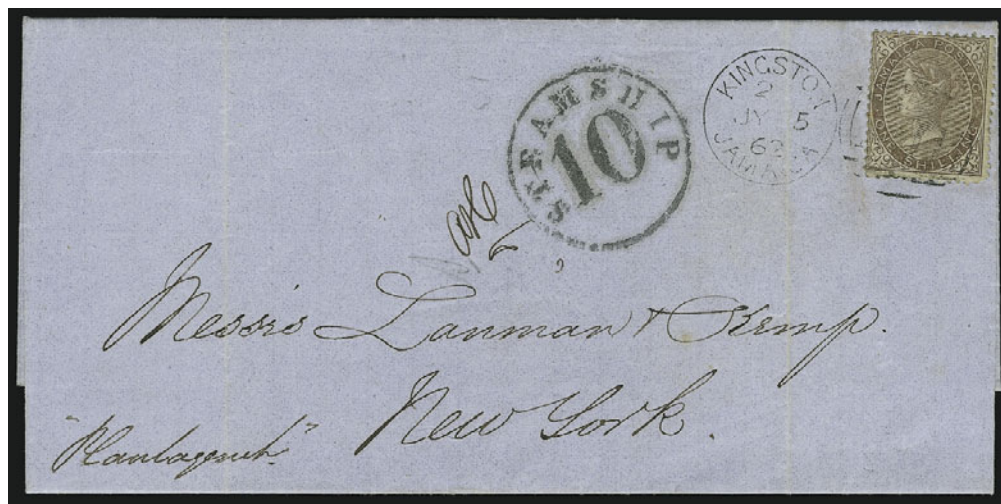 STEAMSHIP
10
KINGSTON
2
JY 5
62
JAMAICA
JAMAICA POSTAGE
ONE SHILLING
Messrs Lanman & Kemp.
New York.
"Plantagenet"